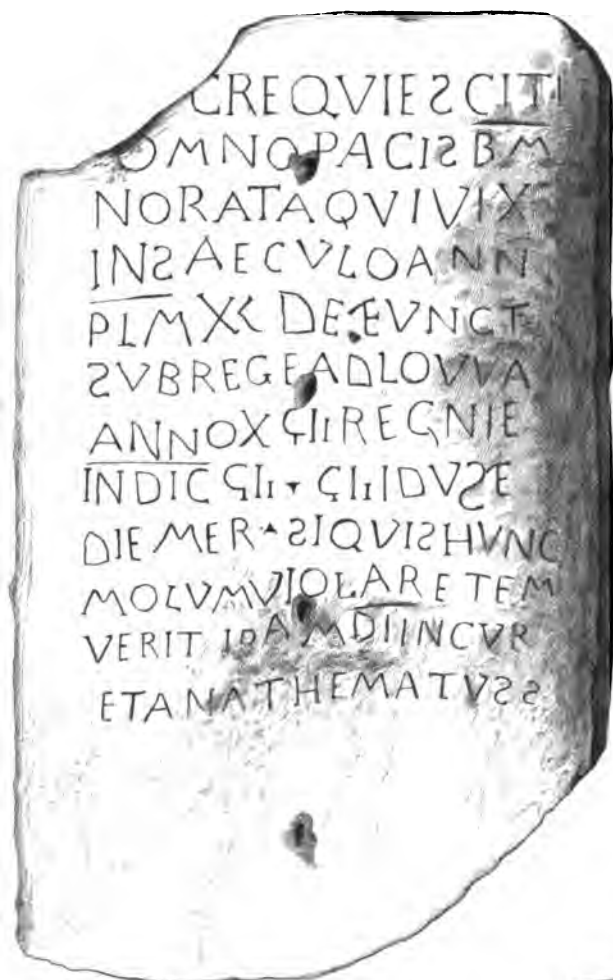 CREQVIESCITI
OMNOPACISBM
NORATAQVIVIX
INSAECVLOANN
PLMXL DEFVNCT
SVBREGEADLOVVA
ANNOXϚIIREGNIE
INDICϚII ▾ ϚIIIDVSE
DIEMER▴SIQVISHVNC
MOLVMVIOLARETEM
VERIT IRAMDIINCVR
ETANATHEMATVSS